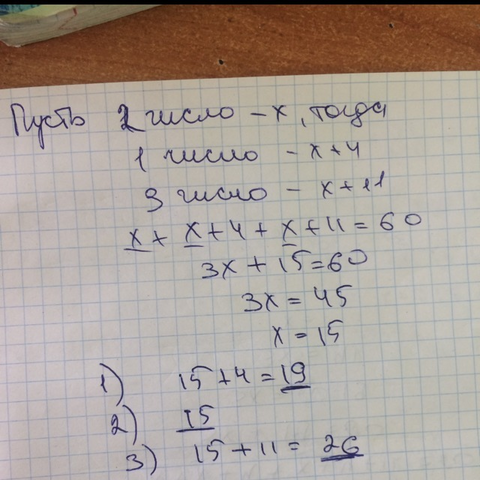 Пусть 2 число - x, тогда
1 число - x+4
3 число - x+11
x + x+4 + x+11 = 60
3x + 15 = 60
3x = 45
x = 15
1) 15+4 = 19
2) 15
3) 15+11 = 26